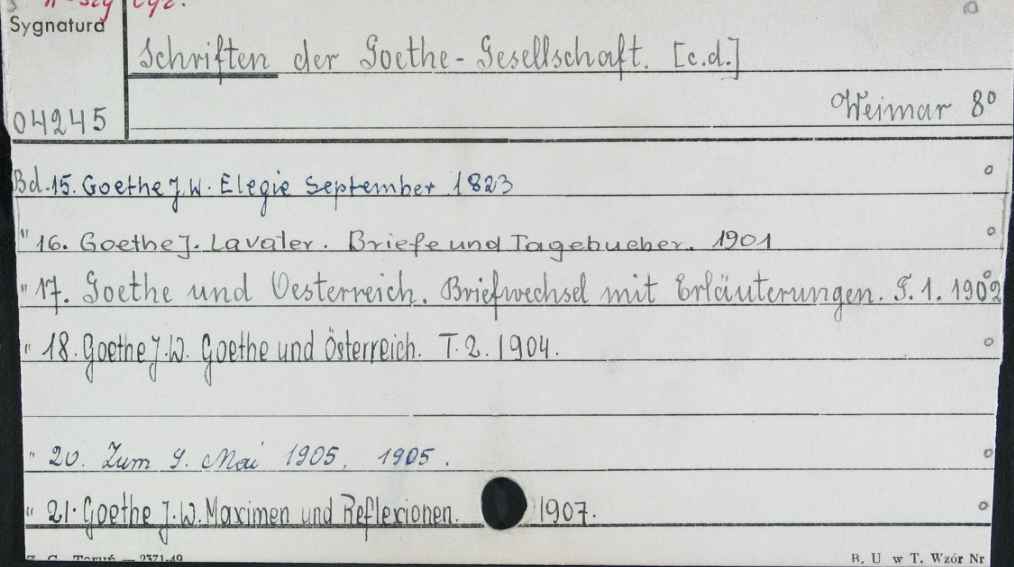 Sygnatura
Schriften der Goethe-Gesellschaft. [c.d.]
04245
Weimar 8°
Bd. 15. Goethe J.W. Elegie September 1823
" 16. Goethe J. Lavater. Briefe und Tagebucher. 1901
" 17. Goethe und Oesterreich. Briefwechsel mit Erläuterungen. T. 1. 1902
" 18. Goethe J.W. Goethe und Österreich. T. 2. 1904.
" 20. Zum 9. Mai 1905. 1905.
" 21. Goethe J.W. Maximen und Reflexionen. 1907.
Z. G. Toruń — 2371-49
B. U w T. Wzór Nr